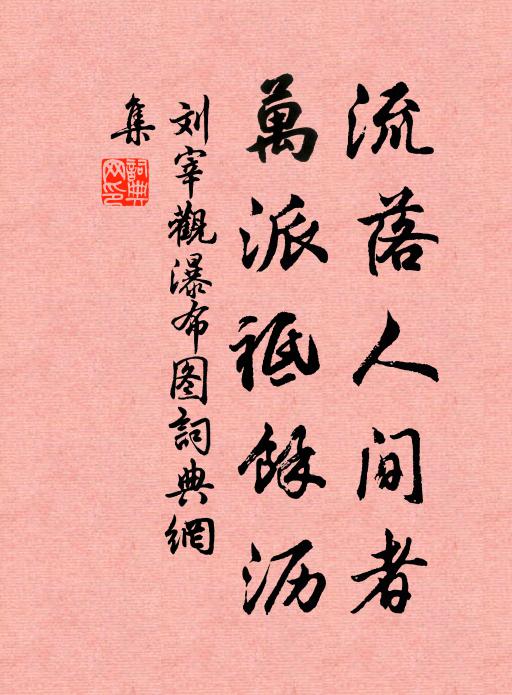 流落人间者
萬派祗餘沥
刘宰觀瀑布图詞典網
集
詞典
网印